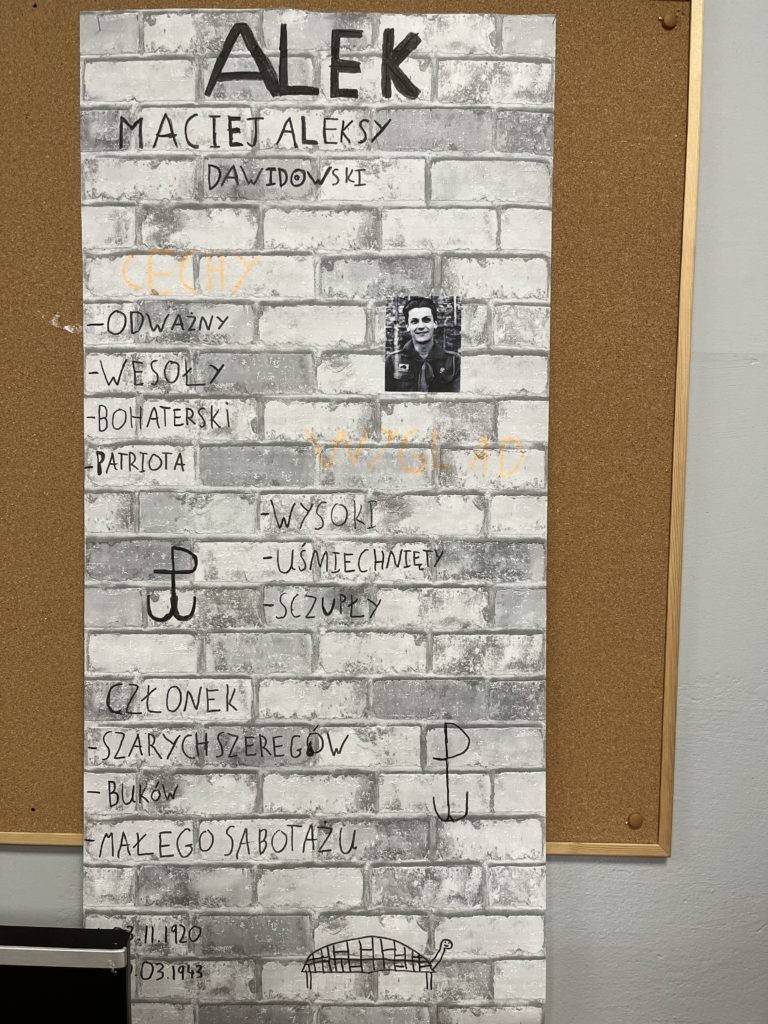 ALEK
MACIEJ ALEKSY
DAWIDOWSKI
CECHY
-ODWAŻNY
-WESOŁY
-BOHATERSKI
-PATRIOTA
WYGLĄD
-WYSOKI
-UŚMIECHNIĘTY
-SCZUPŁY
CZŁONEK
-SZARYCH SZEREGÓW
-BUKÓW
-MAŁEGO SABOTAŻU
3.11.1920
.03.1943